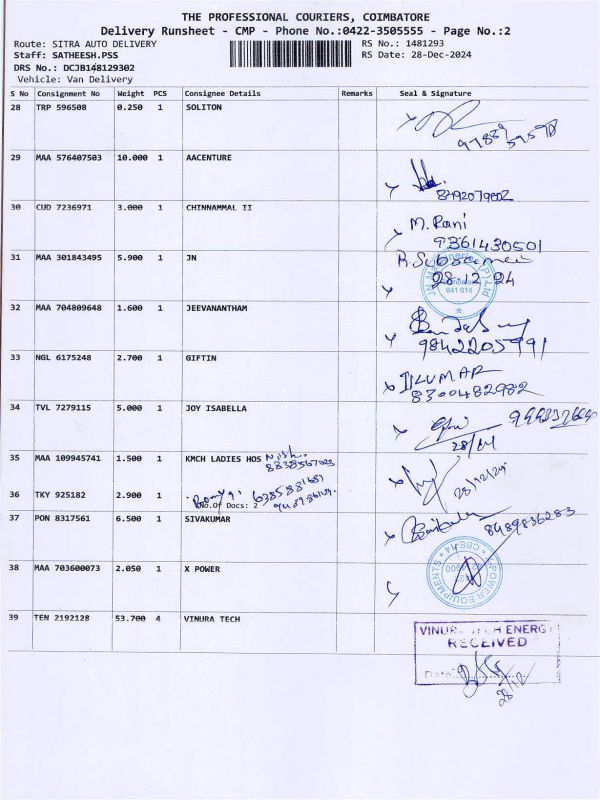 THE PROFESSIONAL COURIERS, COIMBATORE
Delivery Runsheet - CMP - Phone No.:0422-3505555 - Page No.:2
Route: SITRA AUTO DELIVERY RS No.: 1481293
Staff: SATHEESH.PSS RS Date: 28-Dec-2024
DRS No.: DCJB148129302
Vehicle: Van Delivery
S No Consignment No Weight PCS Consignee Details Remarks Seal & Signature
28 TRP 596508 0.250 1 SOLITON
29 MAA 576407503 10.000 1 AACENTURE
30 CUD 7236971 3.000 1 CHINNAMMAL II
M. Rani
9361430501
31 MAA 301843495 5.900 1 JN
28 12 24
641 014
32 MAA 704809648 1.600 1 JEEVANANTHAM
9842205991
33 NGL 6175248 2.700 1 GIFTIN
8300482982
34 TVL 7279115 5.000 1 JOY ISABELLA
35 MAA 109945741 1.500 1 KMCH LADIES HOS
28/12/24
36 TKY 925182 2.900 1
No.Of Docs: 2
37 PON 8317561 6.500 1 SIVAKUMAR
8489836283
38 MAA 703600073 2.050 1 X POWER
X-POWER EQUIPMENTS
39 TEN 2192128 53.700 4 VINURA TECH
VINURA TECH ENERGY
RECEIVED
Date
28/12